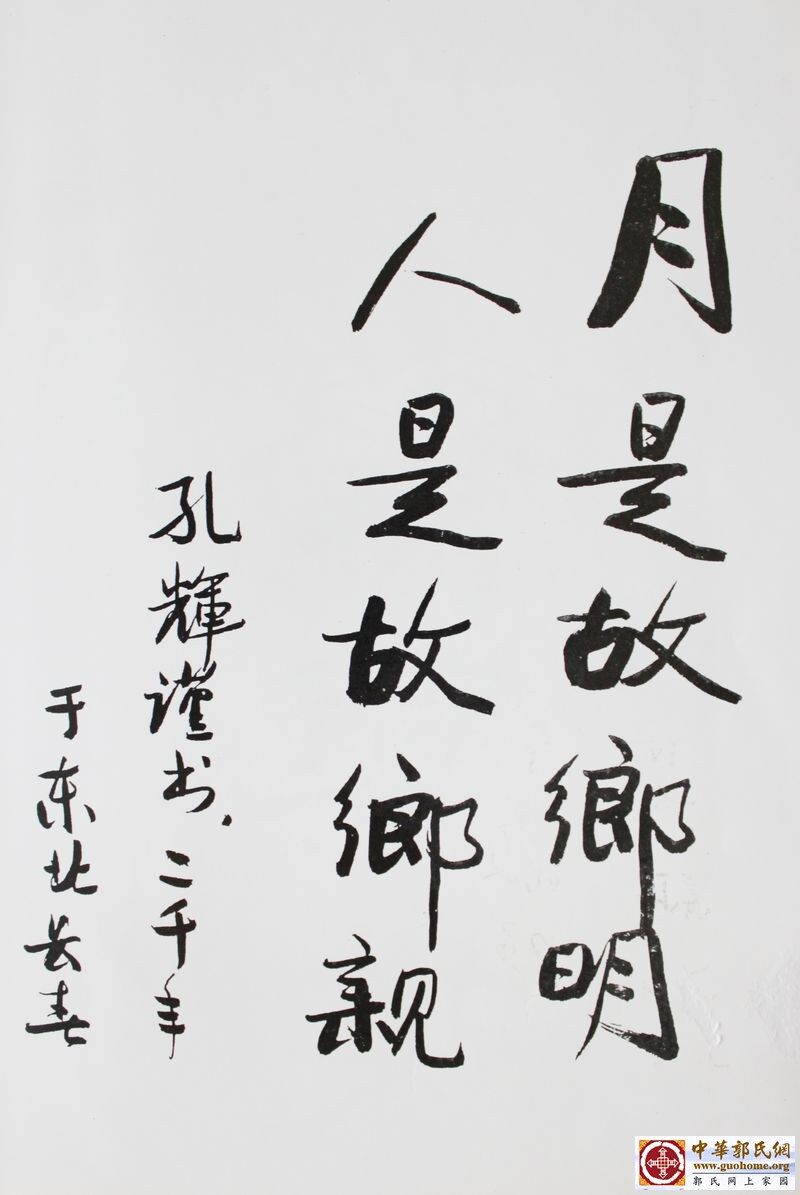 月是故鄉明
人是故鄉親
孔輝謹书、二千年
于东北长春
中華郭氏網
www.guohome.org
郭氏网上家园